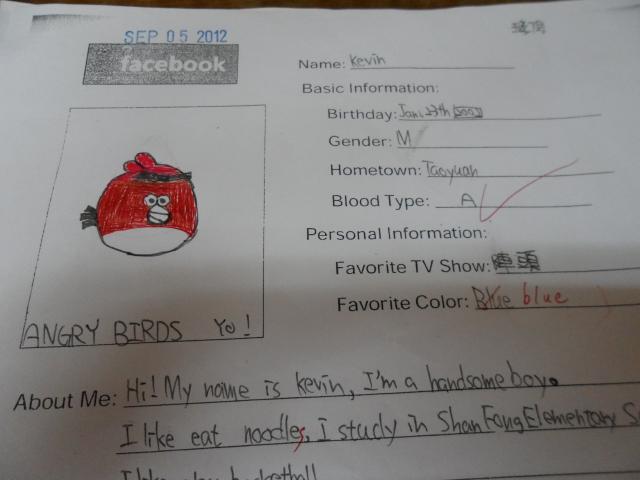 SEP 05 2012
facebook
Name: Kevin
Basic Information:
Birthday: Jan. 27th
Gender: M
Hometown: Taoyuan
Blood Type: A
Personal Information:
Favorite TV Show: 陣頭
Favorite Color: Blue blue
ANGRY BIRDS Yo!
About Me: Hi! My name is kevin, I'm a handsome boy.
I like eat noodles, I study in Shan Fang Elementary S
I like play basketball